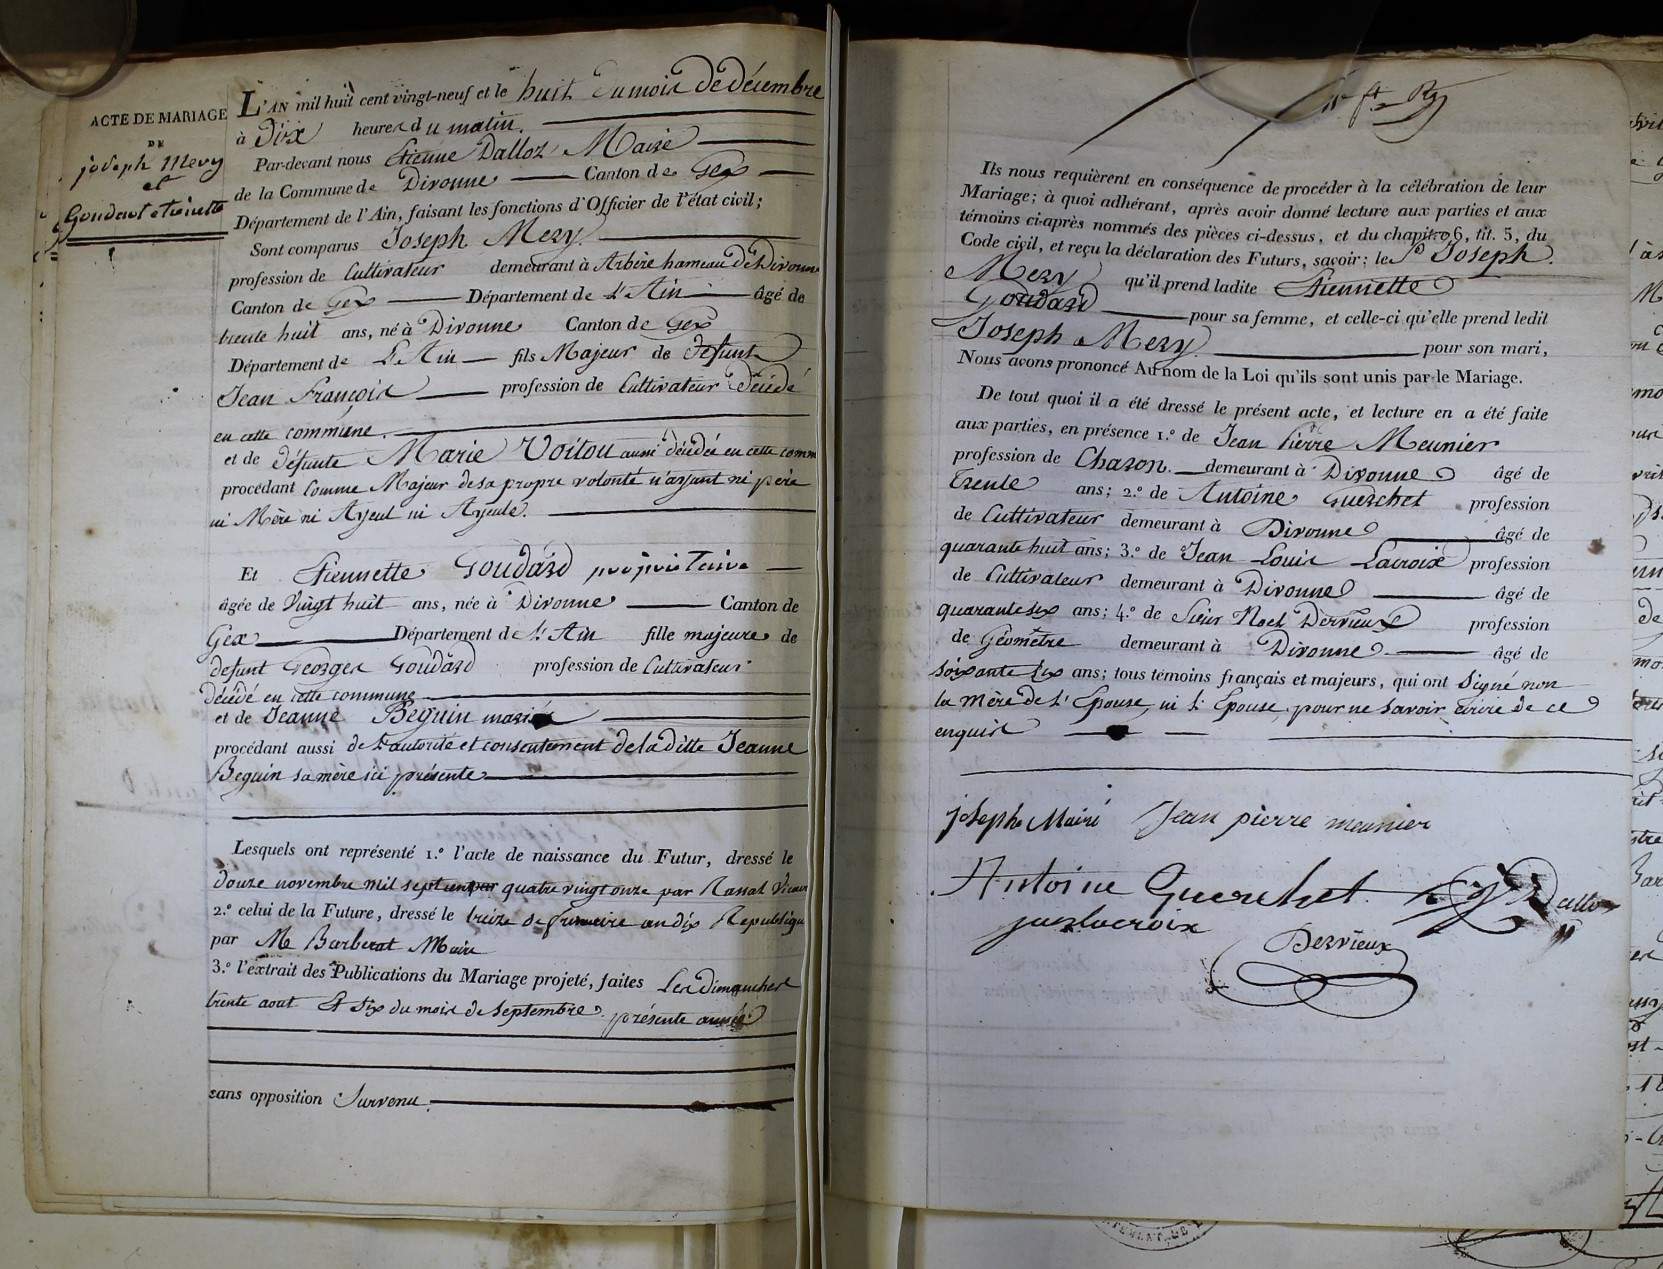 ACTE DE MARIAGE
DE
joseph Mery
et
Goudard etiennette
L'AN mil huit cent vingt-neuf et le huit du mois de décembre
à Dix heures du matin.
Par-devant nous Etienne Dalloz Maire
de la Commune de Divonne Canton de Gex
Département de l'Ain, faisant les fonctions d'Officier de l'état civil;
Sont comparus Joseph Mery.
profession de Cultivateur demeurant à Arbère hameau de Divonne
Canton de Gex Département de L'Ain âgé de
trente huit ans, né à Divonne Canton de Gex
Département de L'Ain fils Majeur de defunt
Jean François profession de Cultivateur Décédé
en cette commune.
et de défunte Marie Voitou aussi décédée en cette comm
procédant Comme Majeur de sa propre volonté n'ayant ni père
ni Mère ni Ayeul ni Ayeule.
Et Etiennette Goudard propriétaire
âgée de Vingt huit ans, née à Divonne Canton de
Gex Département de L'Ain fille majeure de
defunt Georges Goudard profession de Cultivateur
décédé en cette commune
et de Jeanne Beguin
procédant aussi de l'autorité et consentement de la ditte Jeanne
Beguin sa mère ici présente
Lesquels ont représenté 1.º l'acte de naissance du Futur, dressé le
douze novembre mil sept cent quatre vingt onze par Vicaire
2.º celui de la Future, dressé le treize de frimaire an dix Républiq
par Mr Barberat Maire
3.º l'extrait des Publications du Mariage projeté, faites Les dimanches
trente aout Et Six du mois de Septembre présente année
sans opposition Survenu.
Ils nous requièrent en conséquence de procéder à la célébration de leur
Mariage; à quoi adhérant, après avoir donné lecture aux parties et aux
témoins ci-après nommés des pièces ci-dessus, et du chapitre 6, tit. 5, du
Code civil, et reçu la déclaration des Futurs, savoir: le Sr Joseph
Mery qu'il prend ladite Etiennette
Goudard pour sa femme, et celle-ci qu'elle prend ledit
Joseph Mery pour son mari,
Nous avons prononcé Au nom de la Loi qu'ils sont unis par le Mariage.
De tout quoi il a été dressé le présent acte, et lecture en a été faite
aux parties, en présence 1.º de Jean Pierre Meunier
profession de Charon. demeurant à Divonne âgé de
Trente ans; 2.º de Antoine Guerchet profession
de Cultivateur demeurant à Divonne âgé de
quarante huit ans; 3.º de Jean Louis Lacroix profession
de Cultivateur demeurant à Divonne âgé de
quarante six ans; 4.º de Sieur Noel Dervieux profession
de Géomètre demeurant à Divonne âgé de
soixante Six ans; tous témoins français et majeurs, qui ont Signé non
la mère de L'Epouse, ni L'Epouse, pour ne Savoir écrire de ce
enquis
joseph Mairi Jean pierre meunier
Antoine Guerchet Dalloz
jn ls lacroix
Dervieux